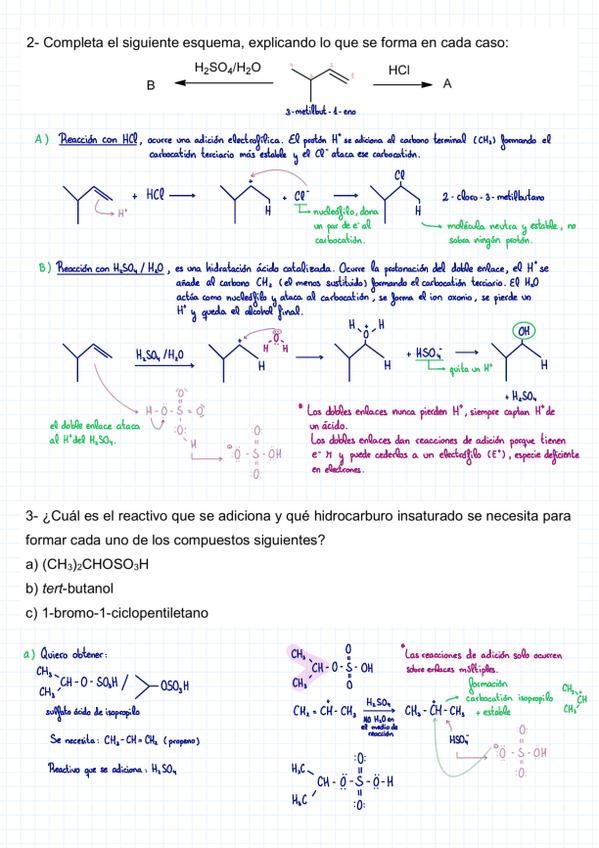 2- Completa el siguiente esquema, explicando lo que se forma en cada caso:
B H₂SO₄/H₂O HCl A
3-metilbut-1-eno
A) Reacción con HCl, ocurre una adición electrofílica. El protón H⁺ se adiciona al carbono terminal (CH₂) formando el
carbocatión terciario más estable y el Cl⁻ ataca ese carbocatión.
+ HCl + Cl⁻ Cl 2-cloro-3-metilbutano
H⁺ H H
nucleófilo, dona
un par de e⁻ al
carbocatión.
molécula neutra y estable, no
sobra ningún protón.
B) Reacción con H₂SO₄ / H₂O, es una hidratación ácido catalizada. Ocurre la protonación del doble enlace, el H⁺ se
añade al carbono CH₂ (el menos sustituido) formando el carbocatión terciario. El H₂O
actúa como nucleófilo y ataca al carbocatión, se forma el ion oxonio, se pierde un
H⁺ y queda el alcohol final.
H₂SO₄/H₂O H H O H O H + HSO₄⁻ OH
H H H
quita un H⁺
+ H₂SO₄
el doble enlace ataca
al H⁺ del H₂SO₄.
H-O-S=O
O
O
H
O
O-S-OH
O
* Los dobles enlaces nunca pierden H⁺, siempre captan H⁺ de
un ácido.
Los dobles enlaces dan reacciones de adición porque tienen
e⁻ π y puede cederlos a un electrófilo (E⁺), especie deficiente
en electrones.
3- ¿Cuál es el reactivo que se adiciona y qué hidrocarburo insaturado se necesita para
formar cada uno de los compuestos siguientes?
a) (CH₃)₂CHOSO₃H
b) tert-butanol
c) 1-bromo-1-ciclopentiletano
a) Quiero obtener:
CH₃
CH-O-SO₃H / OSO₃H
CH₃
sulfato ácido de isopropilo
Se necesita: CH₃-CH=CH₂ (propeno)
Reactivo que se adiciona: H₂SO₄
CH₃ O
CH-O-S-OH
CH₃ O
*Las reacciones de adición solo ocurren
sobre enlaces múltiples.
CH₂=CH-CH₃ H₂SO₄ CH₃-CH-CH₃
NO H₂O en
el medio de
reacción
formación
carbocatión isopropilo
+ estable
CH₃
CH
CH₃
HSO₄⁻
O
O-S-OH
O
H₃C O
CH-O-S-O-H
H₃C O